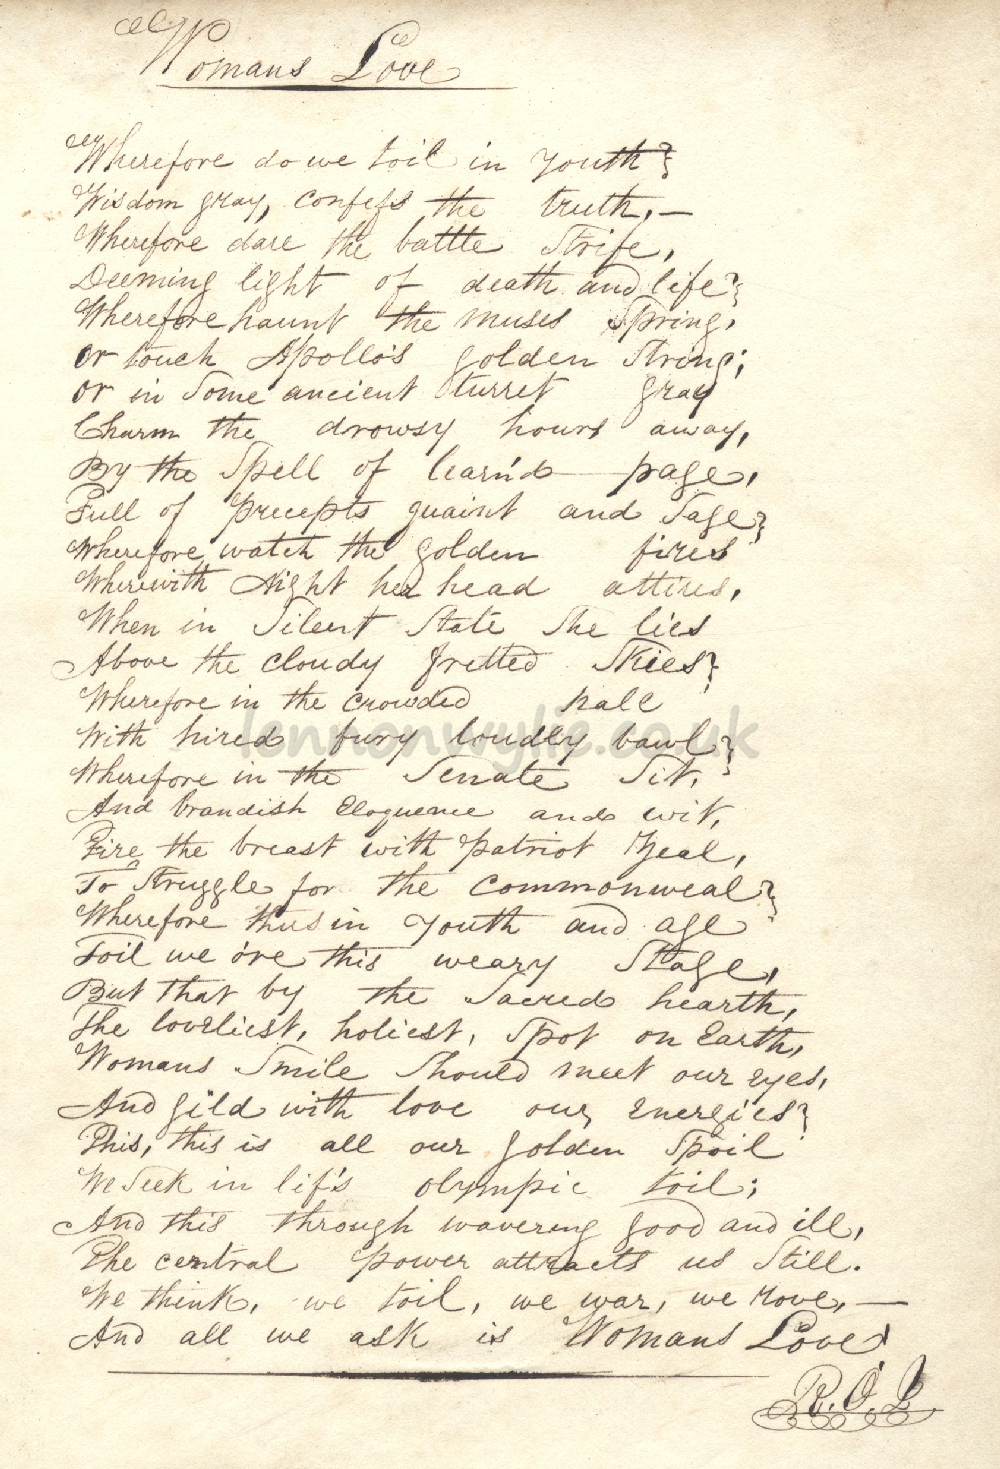 Womans Love
Wherefore do we toil in youth?
Wisdom gray, confess the truth, —
Wherefore dare the battle Strife,
Deeming light of death and life?
Wherefore haunt the muses Spring,
or touch Apollo's golden String;
or in Some ancient turret gray
Charm the drowsy hours away,
By the Spell of learn'd page,
Full of precepts quaint and Sage?
Wherefore watch the golden fires
Wherewith Night her head attires,
When in Silent State She lies
Above the cloudy fretted Skies?
Wherefore in the crowded hall
With hired fury loudly bawl?
Wherefore in the Senate Sit,
And brandish Eloquence and wit,
Fire the breast with patriot Zeal,
To Struggle for the commonweal?
Wherefore thus in youth and age
Toil we o're this weary Stage,
But that by the Sacred hearth,
The loveliest, holiest, Spot on Earth,
Womans Smile Should meet our eyes,
And gild with love our energies?
This, this is all our golden Spoil
We Seek in lif's olympic toil;
And this through wavering good and ill,
The central power attracts us Still.
We think, we toil, we war, we rove, —
And all we ask is Womans Love!
lennonwylie.co.uk